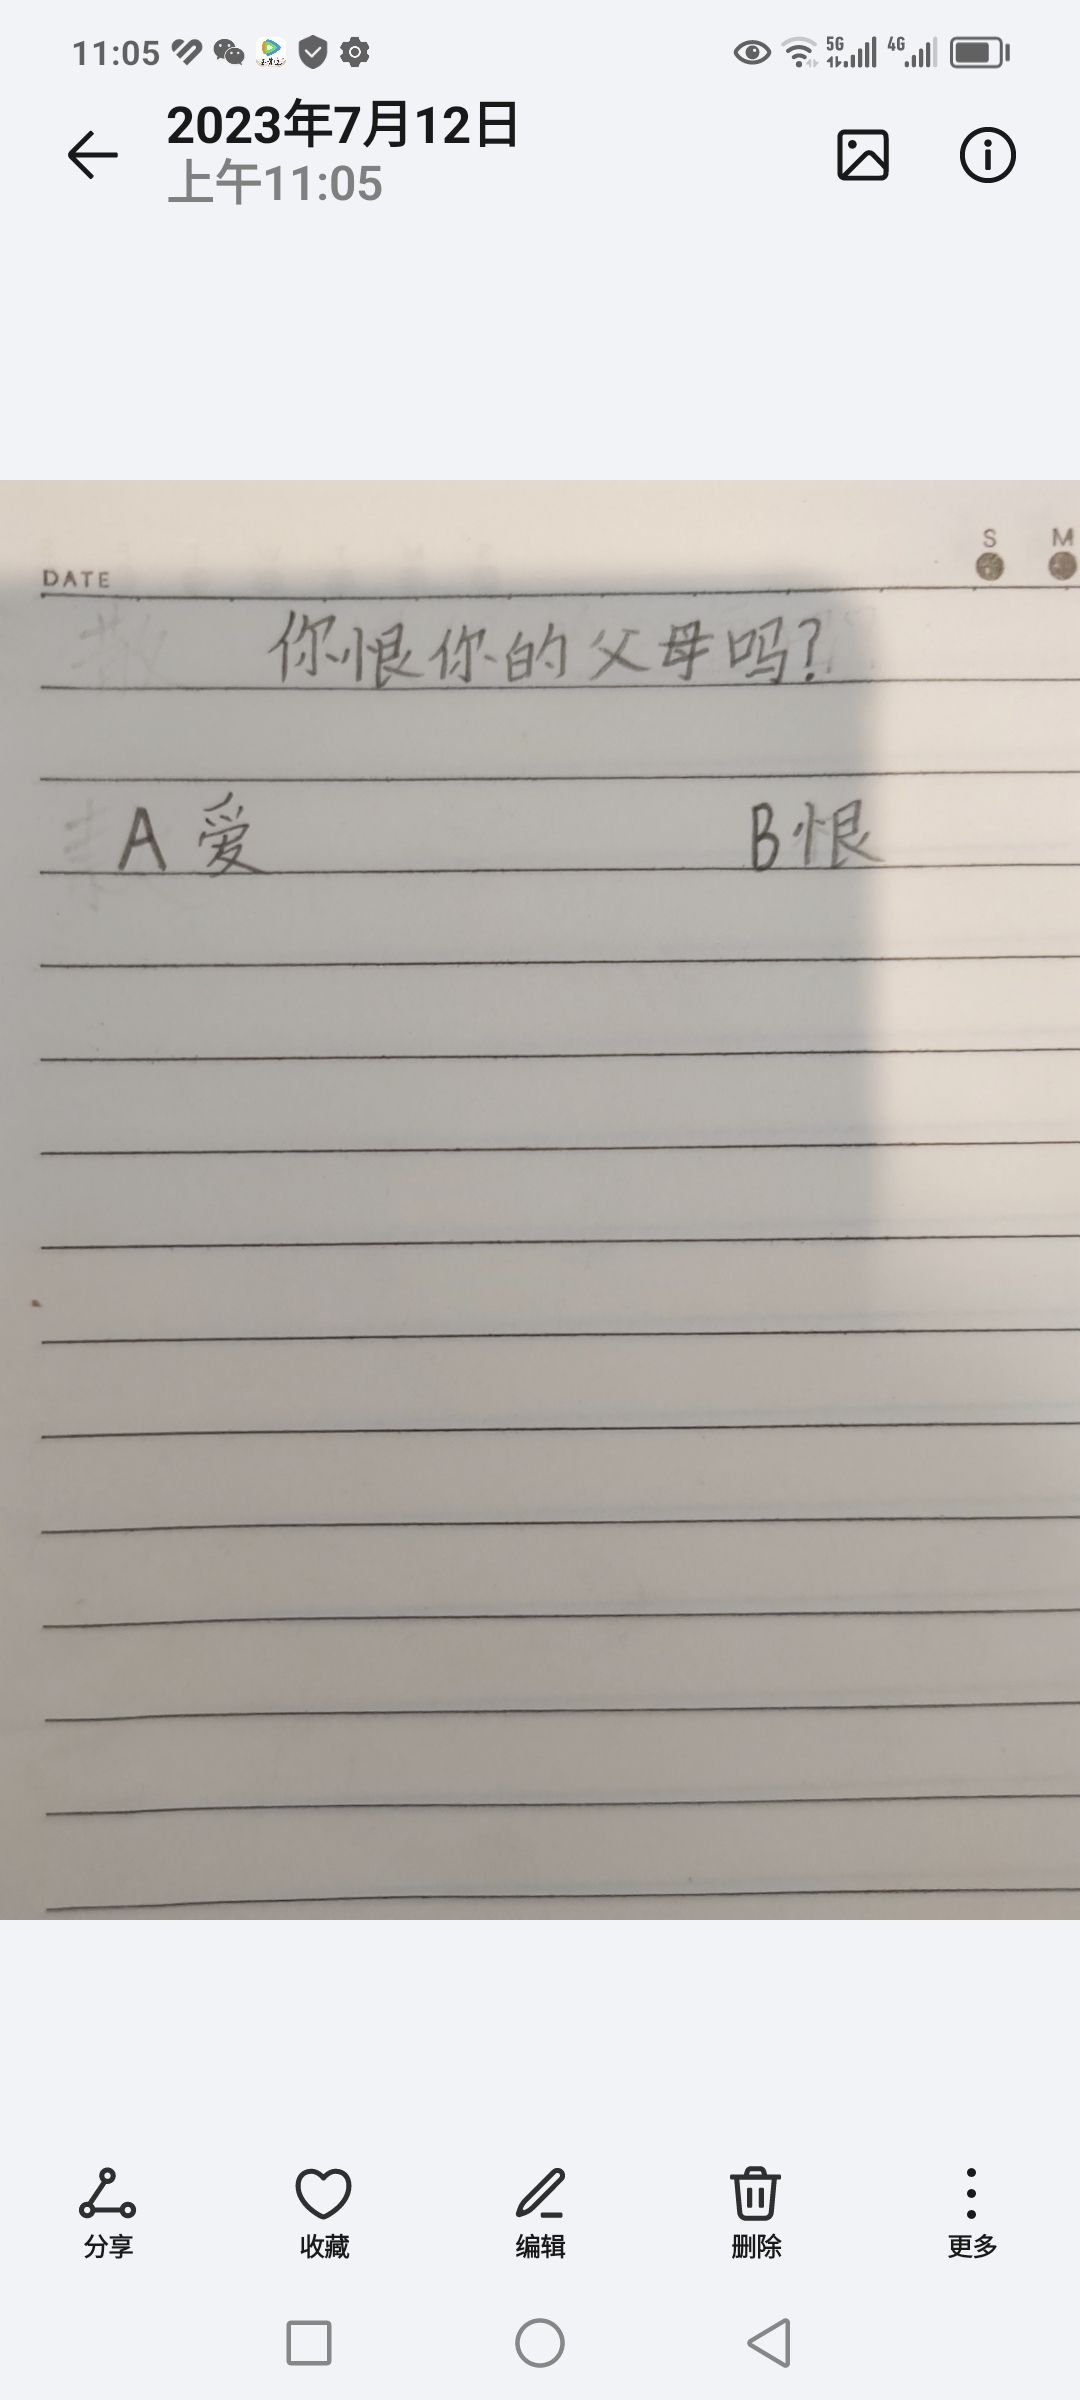 11:05
5G
4G
2023年7月12日
上午11:05
S M
DATE
你恨你的父母吗?
A 爱 B 恨
分享 收藏 编辑 删除 更多